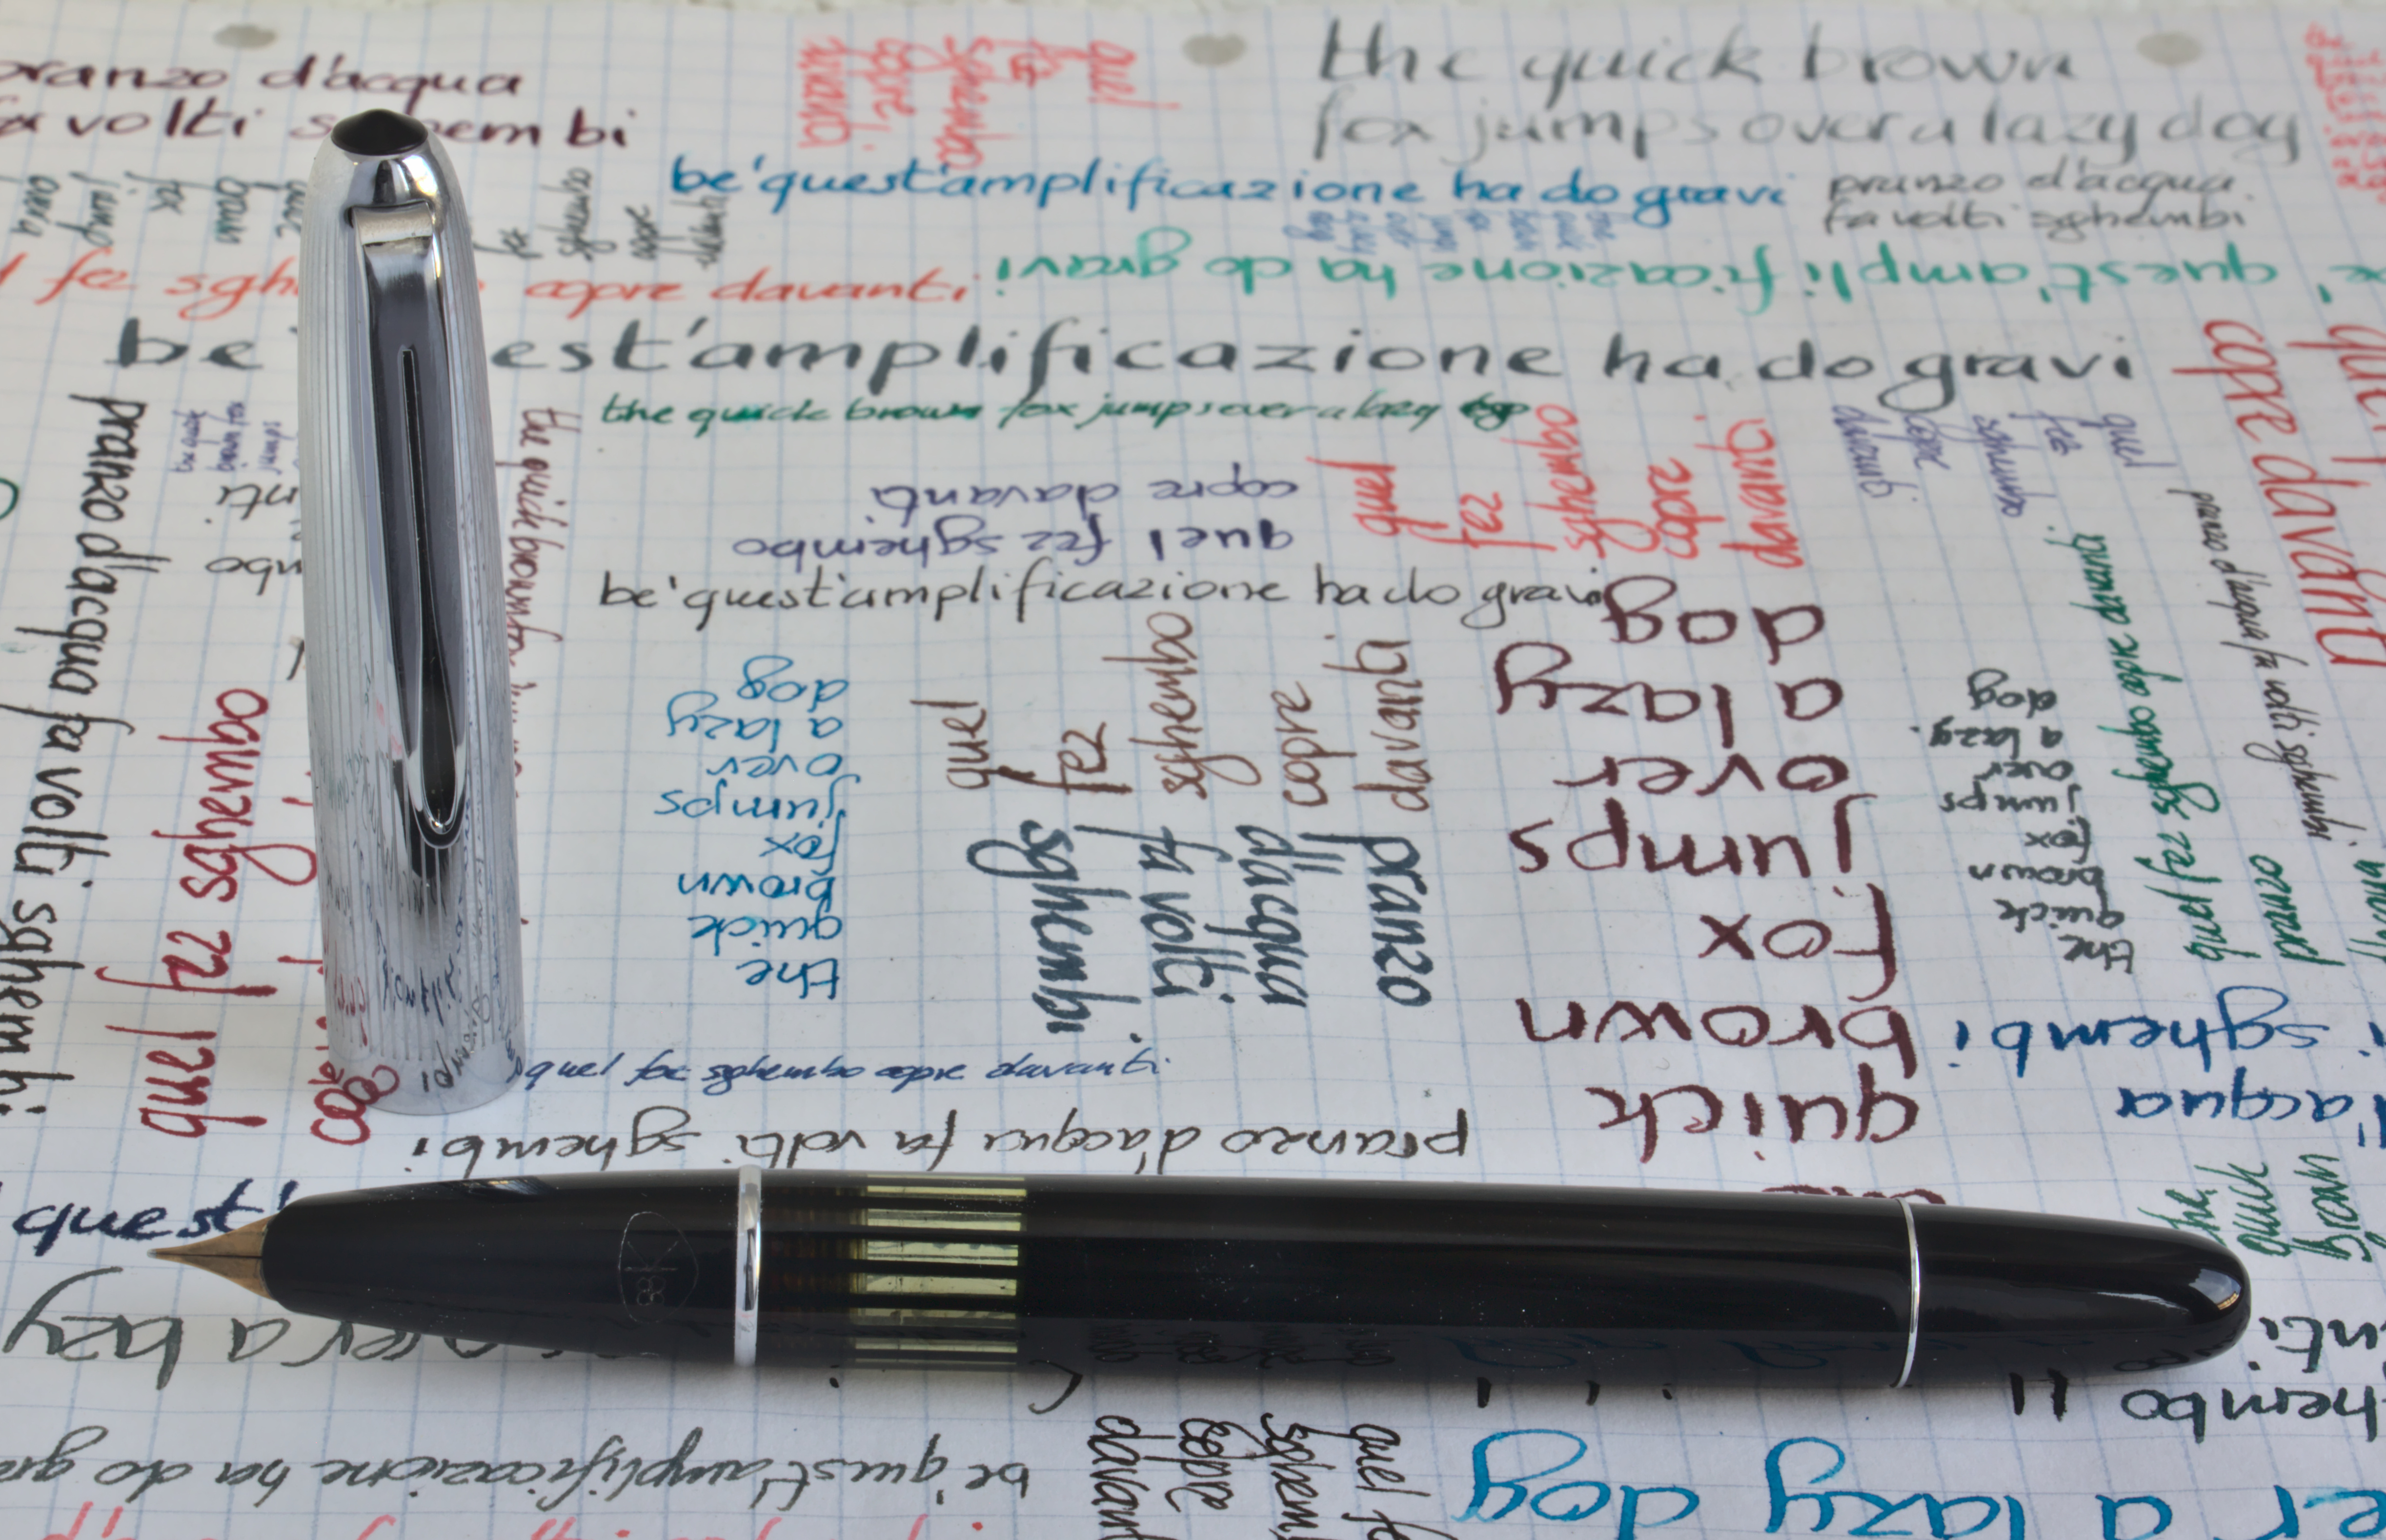 pranzo d'acqua
fa volti sghembi
quel
fez
sghembo
copre
davanti
the quick brown
fox jumps over a lazy dog
be'quest'amplificazione ha do gravi
pranzo d'acqua
fa volti sghembi
fez
sghembo
copre
davanti
fez
copre davanti
be' quest'amplificazione ha do gravi
be est'amplificazione ha do gravi
the quick brown fox jumps over a lazy dog
quel fez sghembo
copre davanti
quel
fez
sghembo
copre
davanti
quel
fez
sghembo
copre
davanti
copre davanti
be'quest'amplificazione ha do gravi
pranzo d'acqua fa volti sghembi
the quick brown fox
quel fez sghembo
the
quick
brown
fox
jumps
over
a lazy
dog
quel
fez
sghembo
copre
davanti
pranzo
d'acqua
fa volti
sghembi
quick
brown
fox
jumps
over
a lazy
dog
the
quick
brown
fox
jumps
over
a lazy
dog
quel fez sghembo copre davanti
pranzo d'acqua fa volti sghembi
pranzo
sghembi
d'acqua
quel fez sghembo copre davanti
pranzo d'acqua fa volti sghembi
quest'
the
quick
Brown
88K
over a lazy
be'quest'amplificazione ha do
quel
sghem
copre
davant
a lazy dog